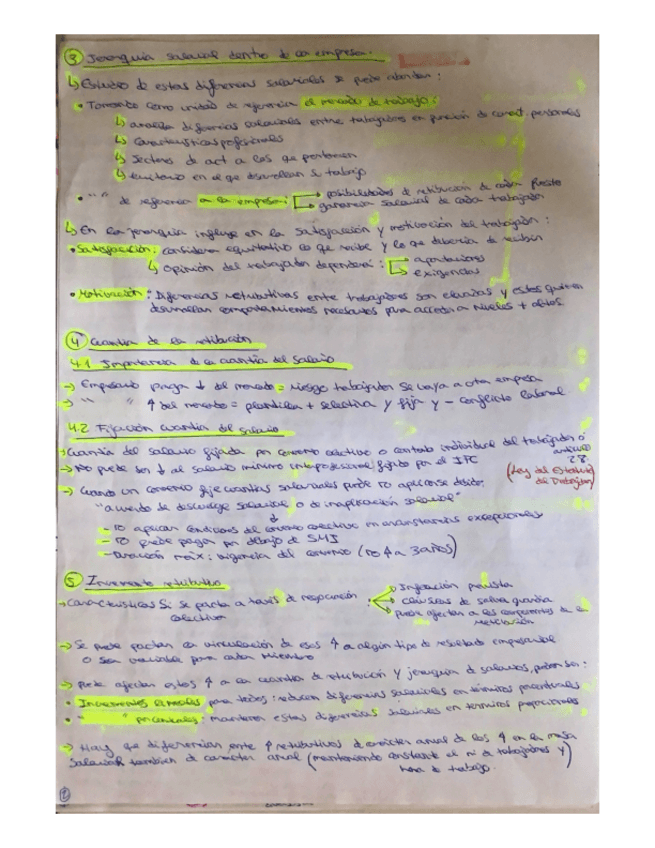 ③ Jerarquía salarial dentro de la empresa:
↳ Estudio de estas diferencias salariales se puede abordar:
• Tomando como unidad de referencia el mercado de trabajo:
↳ analiza diferencias salariales entre trabajadores en función de caract. personales
↳ Características profesionales
↳ Sectores de act a los que pertenecen
↳ territorio en el que desarrollan su trabajo
• " " de referencia a la empresa: → posibilidades de retribución de cada puesto
→ ganancia salarial de cada trabajador
↳ En la jerarquía influye en la satisfacción y motivación del trabajador:
• Satisfacción: considera equitativo lo que recibe y lo que debería de recibir
↳ Opinión del trabajador dependerá: aportaciones
exigencias
• Motivación: Diferencias retributivas entre trabajadores son elevadas y estos quieren
desarrollan comportamientos necesarios para acceder a niveles + altos.
④ Cuantía de la retribución
4.1 Importancia de la cuantía del salario
→ Empresario paga ↓ del mercado = riesgo trabajador se vaya a otra empresa
→ " " ↑ del mercado = plantilla + selectiva y fija y - conflicto laboral
4.2 Fijación cuantía del salario
→ Cuantía del salario fijada por convenio colectivo o contrato individual del trabajador
→ No puede ser ↓ al salario mínimo interprofesional fijado por el
artículo
28
(Ley del Estatuto
de Trabajadores)
→ Cuando un convenio fije cuantías salariales puede no aplicarse debido:
"acuerdo de descuelgue salarial o de inaplicación salarial"
↓
- no aplican condiciones del convenio colectivo en circunstancias excepcionales
- no puede pagar por debajo de SMI
- Duración máx: vigencia del convenio (no 4 a 3 años)
⑤ Incremento retributivo
→ Características Si se pacta a través de negociación
colectiva
→ Inflación prevista
→ Cláusulas de salvaguardia
→ puede afectar a los componentes de la
retribución
→ Se puede pactar la vinculación de esos ↑ a algún tipo de resultado empresarial
o sea variable para cada miembro
→ puede afectar estos ↑ a la cuantía de retribución y jerarquía de salarios, pueden ser:
• Incrementos lineales para todos: reducen diferencias salariales en términos porcentuales
• " " porcentuales: mantienen estas diferencias salariales en términos proporcionales
→ Hay que diferenciar entre ↑ retributivos de carácter anual de los ↑ en la masa
salarial también de carácter anual (manteniendo constante el nº de trabajadores y)
hora de trabajo.